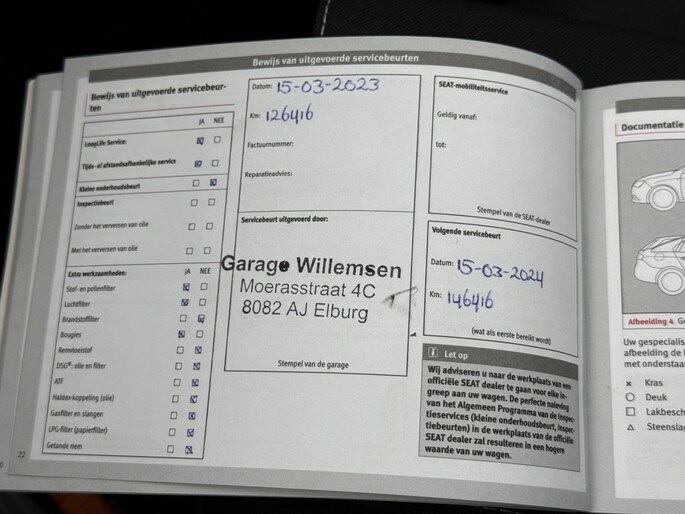 Bewijs van uitgevoerde servicebeurten
Bewijs van uitgevoerde servicebeur-
ten
JA NEE
LongLife Service:
Tijds- of afstandsafhankelijke service
Kleine onderhoudsbeurt
Inspectiebeurt
Zonder het verversen van olie
Met het verversen van olie
Extra werkzaamheden: JA NEE
Stof- en pollenfilter
Luchtfilter
Brandstoffilter
Bougies
Remvloeistof
DSG®: olie en filter
ATF
Haldex-koppeling (olie)
Gasfilter en slangen
LPG-filter (papierfilter)
Getande riem
22
Datum: 15-03-2023
Km: 126416
Factuurnummer:
Reparatieadvies:
Servicebeurt uitgevoerd door:
Garage Willemsen
Moerasstraat 4C
8082 AJ Elburg
Stempel van de garage
SEAT-mobiliteitsservice
Geldig vanaf:
tot:
Stempel van de SEAT-dealer
Volgende servicebeurt
Datum: 15-03-2024
Km: 146416
(wat als eerste bereikt wordt)
Let op
Wij adviseren u naar de werkplaats van een
officiële SEAT dealer te gaan voor elke in-
greep aan uw wagen. De perfecte naleving
van het Algemeen Programma van de inspec-
tieservices (kleine onderhoudsbeurt, inspec-
tiebeurten) in de werkplaats van de officiële
SEAT dealer zal resulteren in een hogere
waarde van uw wagen.
Documentatie
Afbeelding 4 Ge
Uw gespecialis
afbeelding de
met onderstaa
× Kras
Deuk
Lakbesch
Steenslag